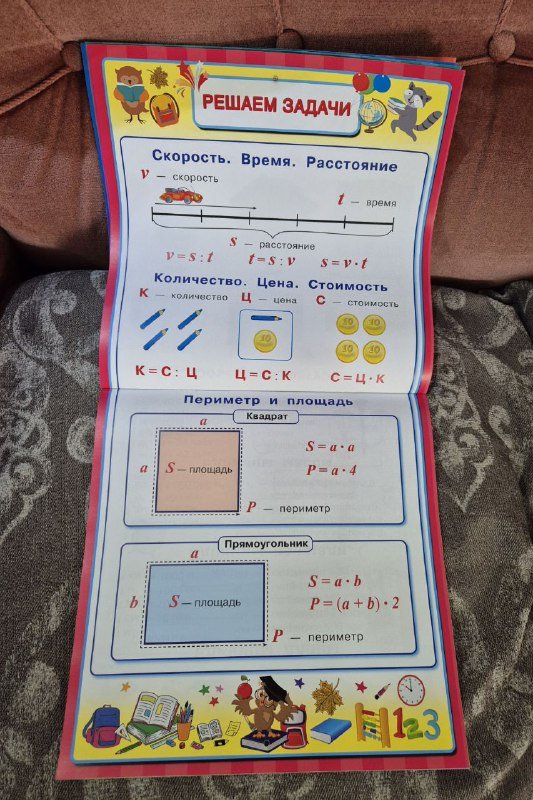 РЕШАЕМ ЗАДАЧИ
Скорость. Время. Расстояние
v — скорость
t — время
s — расстояние
v = s : t t = s : v s = v · t
Количество. Цена. Стоимость
К — количество Ц — цена С — стоимость
10 10
10 10
К = С : Ц Ц = С : К С = Ц · К
Периметр и площадь
Квадрат
a
a S — площадь
S = a · a
P = a · 4
P — периметр
Прямоугольник
a
b S — площадь
S = a · b
P = (a + b) · 2
P — периметр
123